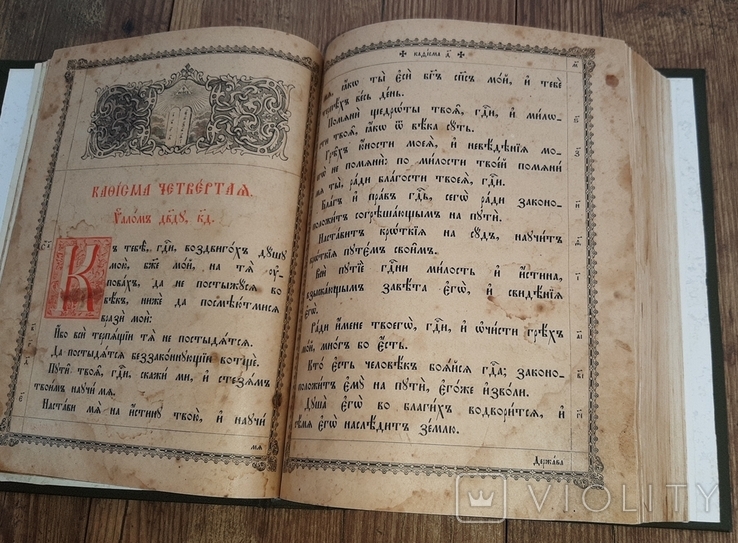 КАѲІСМА ЧЕТВЕ́РТАѦ.
Ѱало́мъ дв҃ду, к҃д.
Къ тебѣ̀, гдⷭ҇и, воздвиго́хъ дꙋ́шꙋ
мою̀, бж҃е мо́й, на тѧ̀ ᲂу҆-
пова́хъ, да не постыжꙋ́сѧ во
вѣ́къ, нижѐ да посмѣю́тмисѧ
вразѝ моѝ:
И҆́бо всѝ терпѧ́щїи тѧ̀ не постыдѧ́тсѧ.
Да постыдѧ́тсѧ беззако́ннꙋющїи вотщѐ.
Пꙋти̑ твоѧ̑, гдⷭ҇и, скажи́ ми, и҆ стезѧ́мъ
твои̑мъ наꙋчи́ мѧ.
Наста́ви мѧ̀ на и҆́стинꙋ твою̀, и҆ наꙋчи́
мѧ̀
✠ каѳі́сма д҃ ✠
мѧ̀, ꙗ҆́кѡ ты̀ є҆сѝ бг҃ъ сп҃съ мо́й, и҆ тебѐ
терпѣ́хъ ве́сь де́нь.
Помѧнѝ щедрѡ́ты твоѧ̑, гдⷭ҇и, и҆ ми́лѡ-
сти твоѧ̑, ꙗ҆́кѡ ѿ вѣ́ка сꙋ́ть.
Грѣ̑хъ ю҆́ности моеѧ̀, и҆ невѣ́дѣнїѧ мо-
егѡ̀ не помѧнѝ: по ми́лости твое́й помѧни́
мѧ ты̀, ра́ди бл҃гости твоеѧ̀, гдⷭ҇и.
Бл҃гъ и҆ пра́въ гдⷭ҇ь, сегѡ̀ ра́ди законо-
положи́тъ согрѣша́ющымъ на пꙋтѝ.
Наста́витъ крѡ́ткїѧ на сꙋ́дъ, наꙋчи́тъ
крѡ́ткїѧ пꙋтє́мъ свои̑мъ.
Всѝ пꙋтїѐ гдⷭ҇ни ми́лость и҆ и҆́стина,
взыска́ющымъ завѣ́та є҆гѡ̀, и҆ свидѣ̑нїѧ
є҆гѡ̀.
Ра́ди и҆́мене твоегѡ̀, гдⷭ҇и, и҆ ѡ҆чи́сти грѣ́хъ
мо́й, мно́гъ бо є҆́сть.
Кто̀ є҆́сть человѣ́къ боѧ́йсѧ гдⷭ҇а; законо-
положи́тъ є҆мꙋ̀ на пꙋтѝ, є҆го́же и҆зво́ли.
Дꙋша̀ є҆гѡ̀ во бл҃ги́хъ водвори́тсѧ, и҆
сѣ́мѧ є҆гѡ̀ наслѣ́дитъ зе́млю.
Держа́ва
VIOLITY